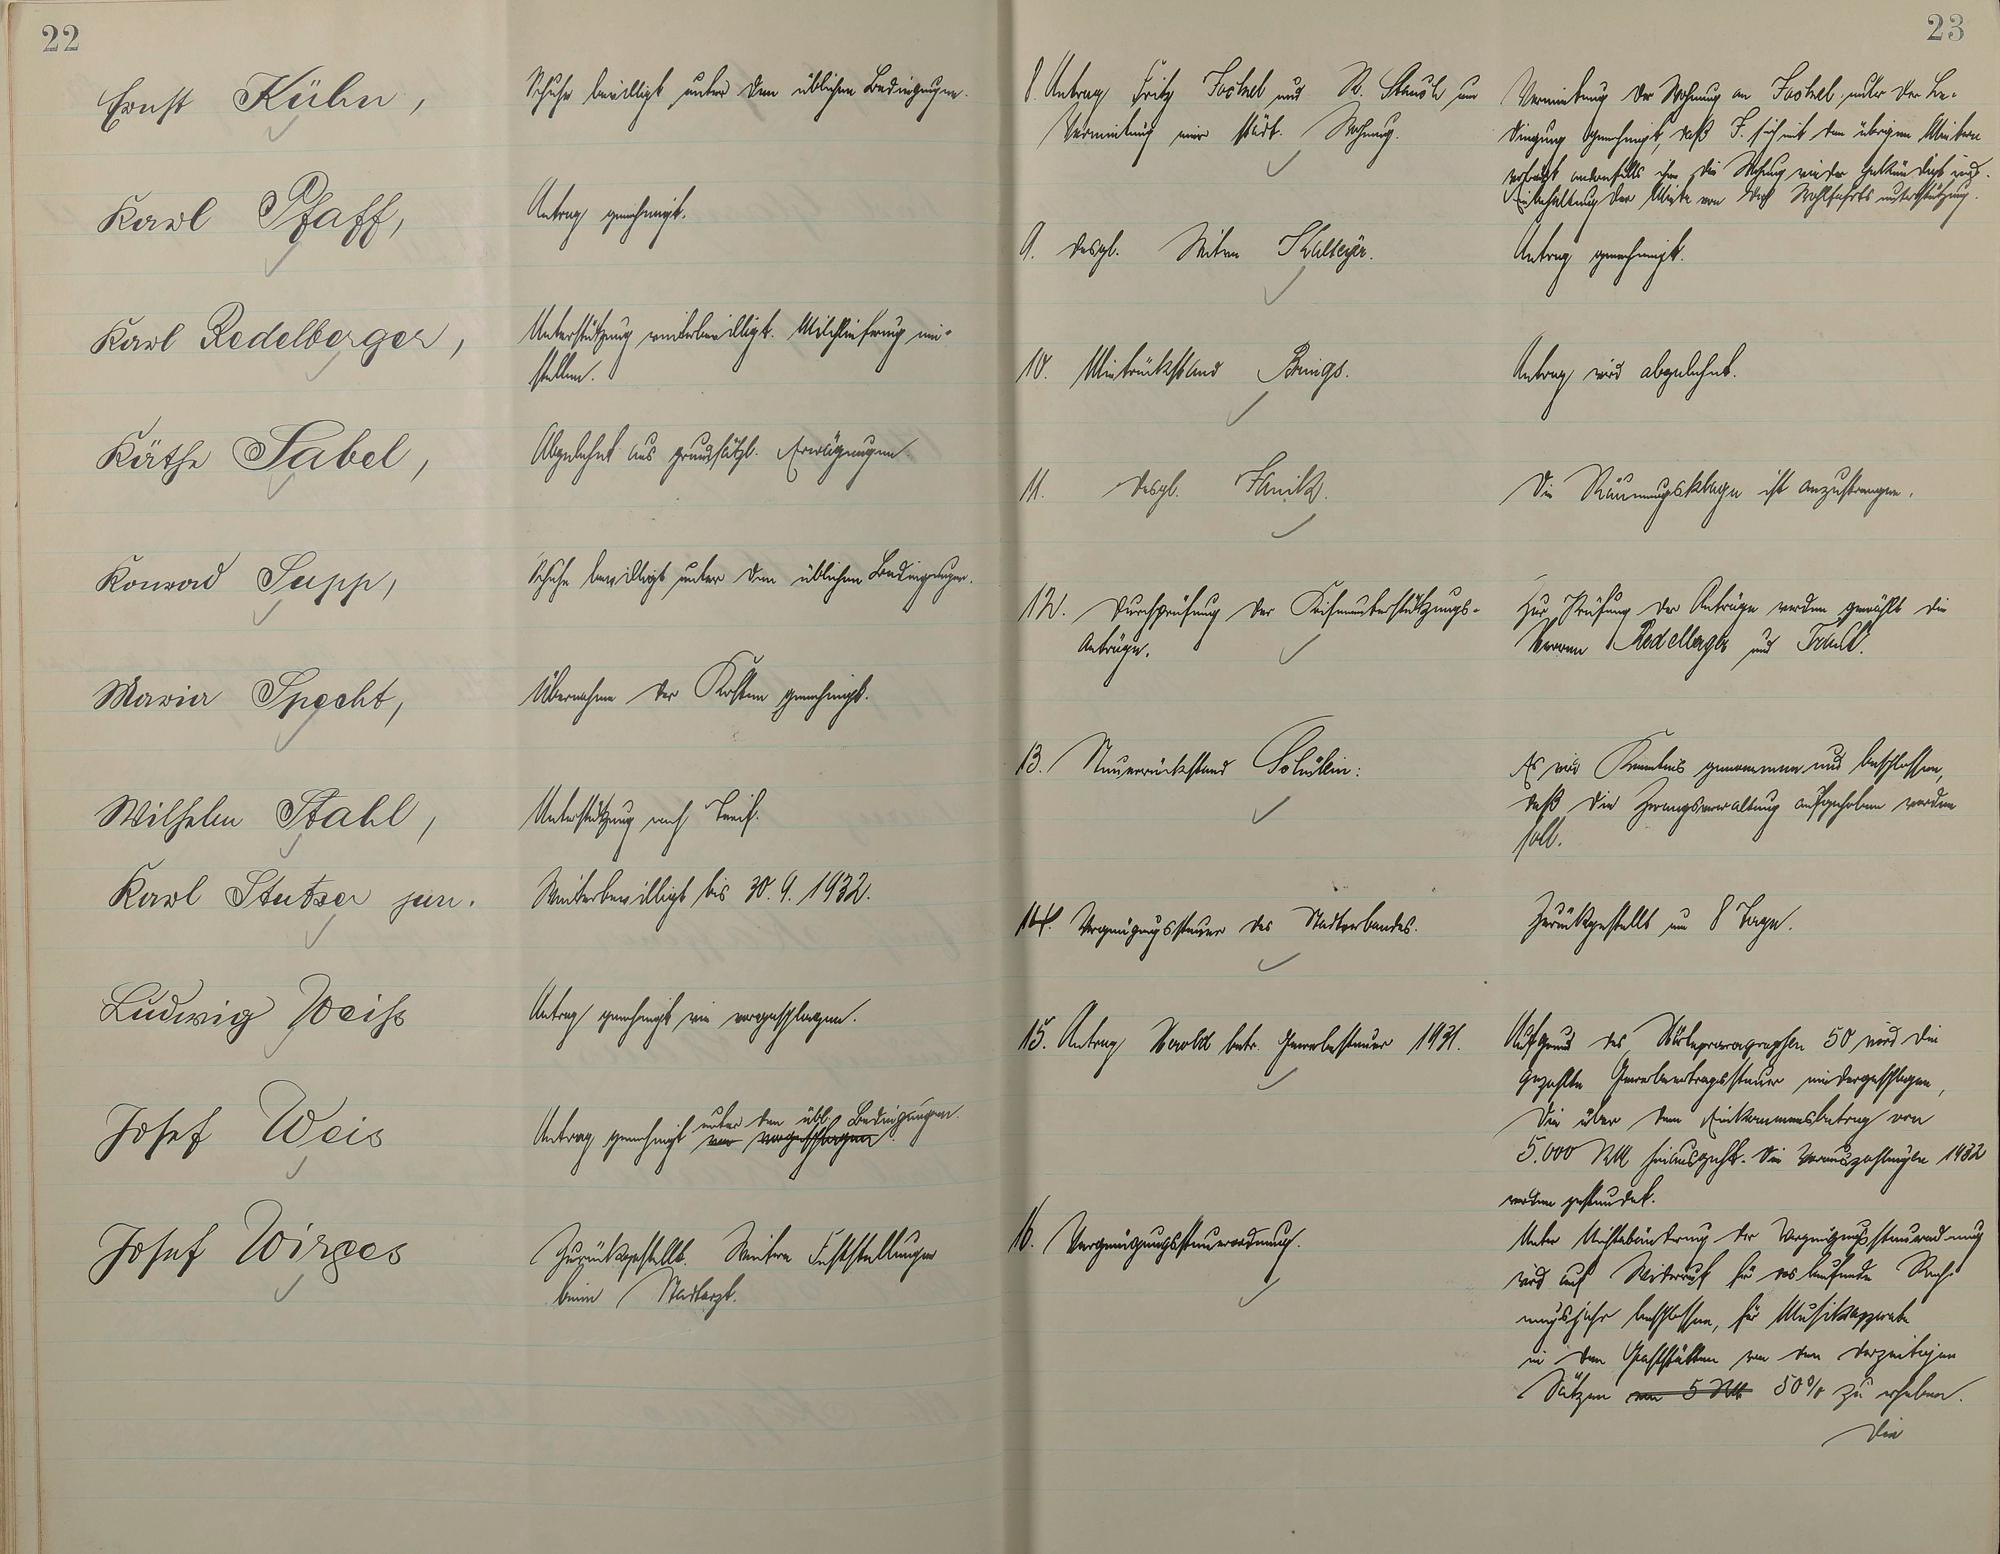 22
Ernst Kühn,
Schuhe bewilligt unter den üblichen Bedingungen.
Karl Pfaff,
Antrag genehmigt.
Karl Redelberger,
Unterstützung weiterbewilligt. Milchlieferung ein-
stellen.
Käthe Sabel,
Abgelehnt aus grundsätzl. Erwägungen.
Konrad Supp,
Schuhe bewilligt unter den üblichen Bedingungen.
Maria Specht,
Übernahme der Kosten genehmigt.
Wilhelm Stahl,
Unterstützung nach Tarif.
Karl Stutzer jun.
Weiterbewilligt bis 30.9.1932.
Ludwig Weiss
Antrag genehmigt wie vorgeschlagen.
Josef Weis
Antrag genehmigt unter den übl. Bedingungen.
wie vorgeschlagen
Josef Wirges
Zurückgestellt. Weitere Feststellungen
beim Stadtarzt.
23
8. Antrag Fritz und um
Vermietung einer städt. Wohnung.
Vermietung der Wohnung an unter der Be-
dingung genehmigt, daß F. sich mit den übrigen Mietern
verträgt andernfalls ihm die Wohnung wieder gekündigt wird.
Einbehaltung der Miete von der Wohlfahrtsunterstützung.
9. desgl.
Antrag genehmigt.
10. Mietrückstand Brings.
Antrag wird abgelehnt.
11. desgl.
Die Räumungsklage ist anzustrengen.
12. Durchprüfung der Krisenunterstützungs-
Anträge.
Zur Prüfung der Anträge werden gewählt die
Herren Redelberger und
13. Steuerrückstand
Es wird Kenntnis genommen und beschlossen,
daß die Zwangsverwaltung aufgehoben werden
soll.
14. Vergnügungssteuer des
Zurückgestellt um 8 Tage.
15. Antrag betr. Gewerbesteuer 1931.
Auf Grund des 50 wird die
gezahlte Gewerbeertragssteuer niedergeschlagen,
die über den Einkommensbetrag von
5.000 RM hinausgeht. Die Vorauszahlungen 1932
werden gestundet.
16. Vergnügungssteuerordnung.
Unter Nichtabänderung der Vergnügungssteuerordnung
wird auf Widerruf für das laufende Rech-
nungsjahr beschlossen, für Musikapparate
in den Gaststätten von den derzeitigen
Sätzen von 5 RM 50% zu erheben.
Die